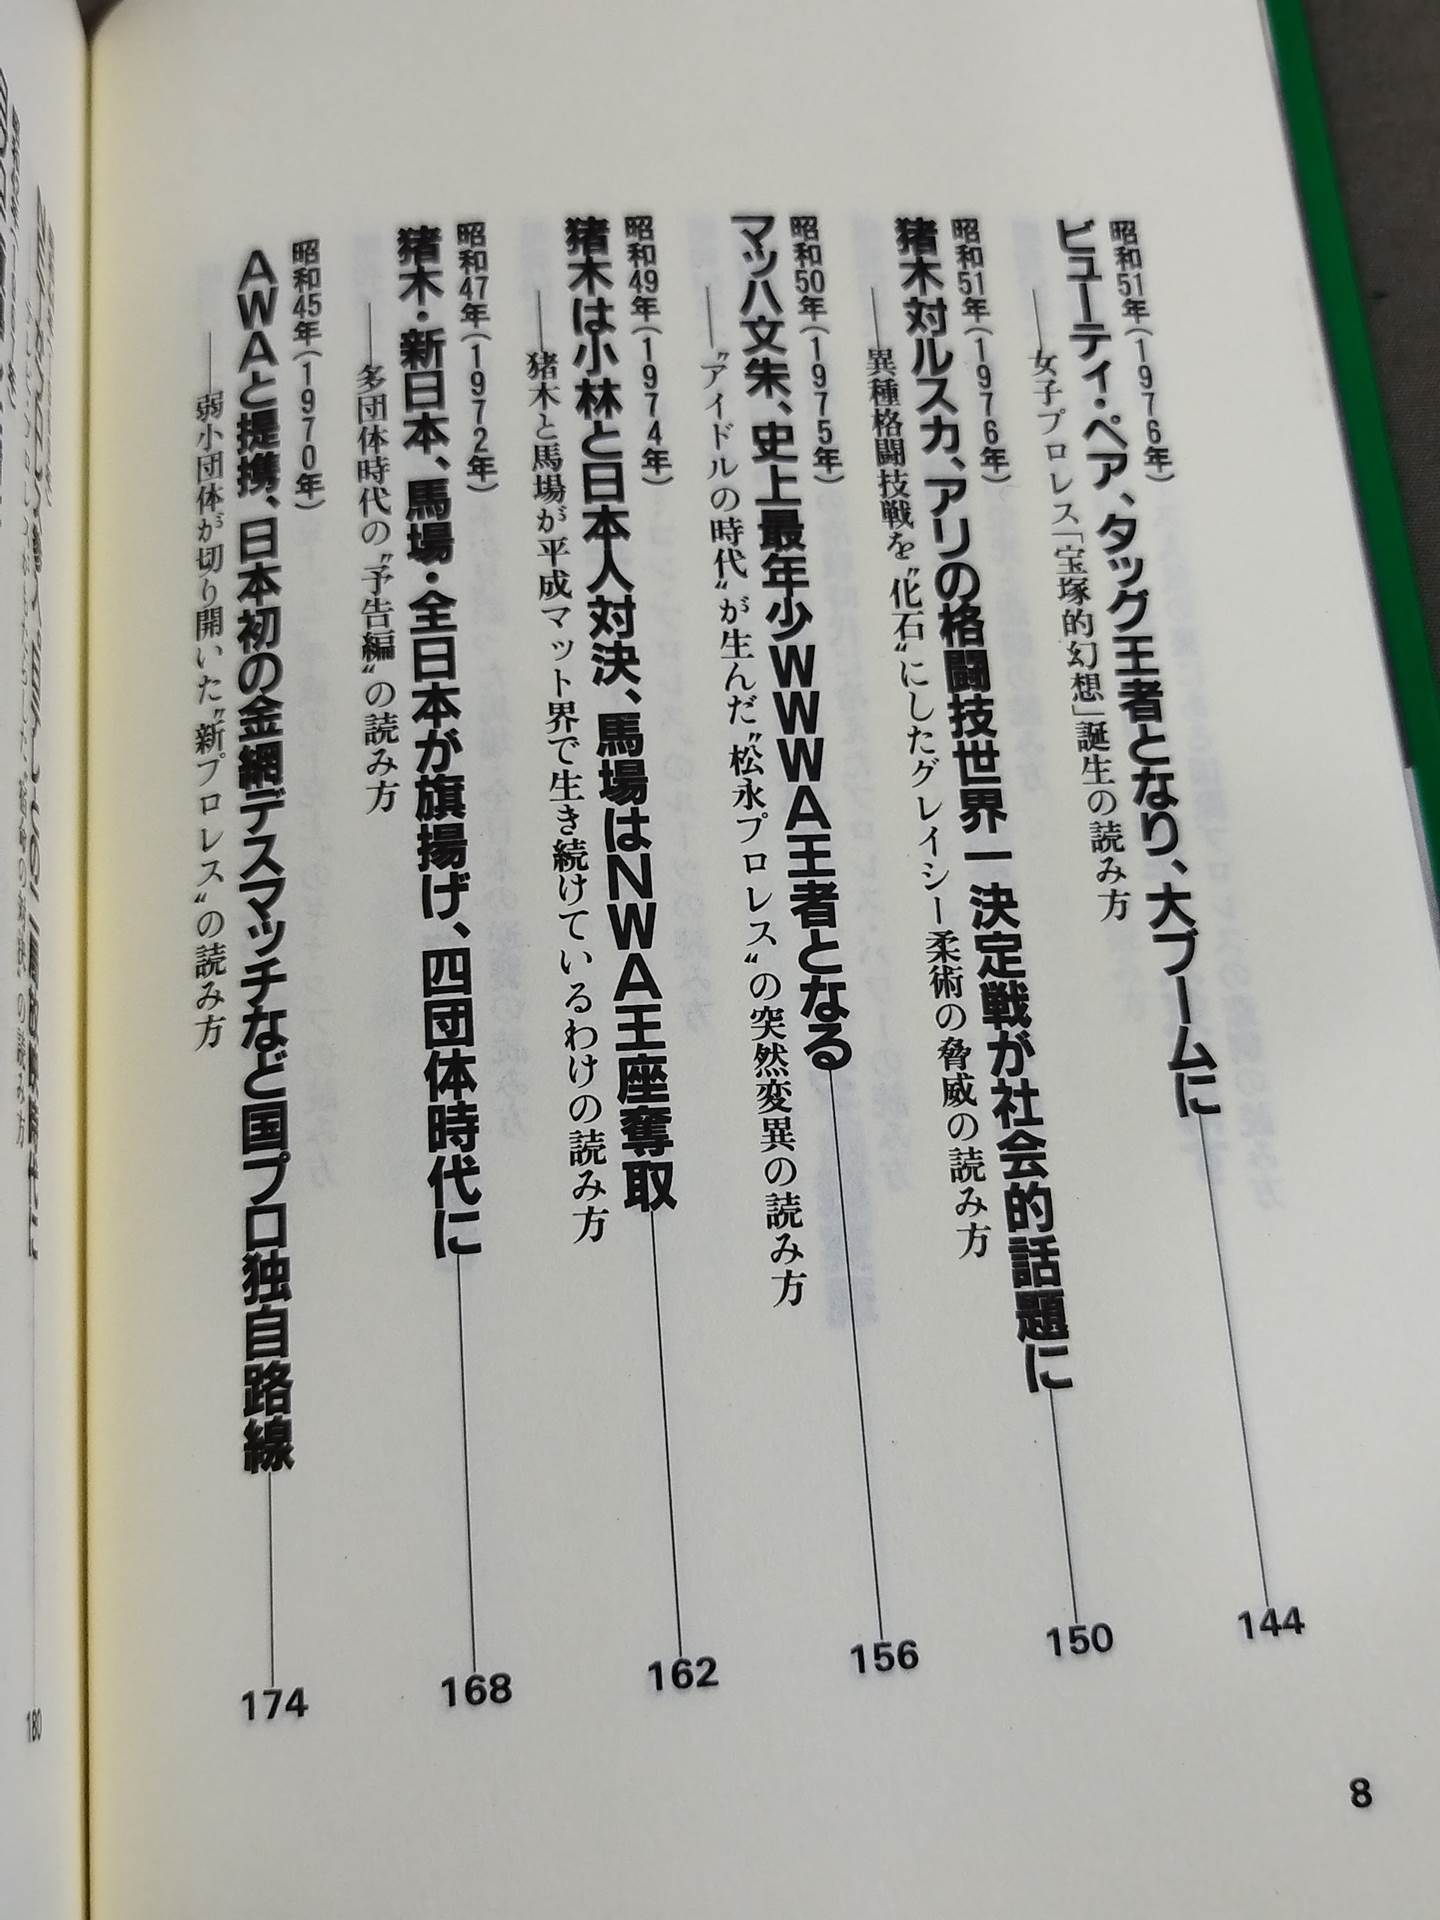 昭和51年(1976年)
ビューティ・ペア、タッグ王者となり、大ブームに 144
――女子プロレス「宝塚的幻想」誕生の読み方
昭和51年(1976年)
猪木対ルスカ、アリの格闘技世界一決定戦が社会的話題に 150
――異種格闘技戦を〝化石〟にしたグレイシー柔術の脅威の読み方
昭和50年(1975年)
マッハ文朱、史上最年少WWWA王者となる 156
――〝アイドルの時代〟が生んだ〝松永プロレス〟の突然変異の読み方
昭和49年(1974年)
猪木は小林と日本人対決、馬場はNWA王座奪取 162
――猪木と馬場が平成マット界で生き続けているわけの読み方
昭和47年(1972年)
猪木・新日本、馬場・全日本が旗揚げ、四団体時代に 168
――多団体時代の〝予告編〟の読み方
昭和45年(1970年)
AWAと提携、日本初の金網デスマッチなど国プロ独自路線 174
――弱小団体が切り開いた〝新プロレス〟の読み方
8
180